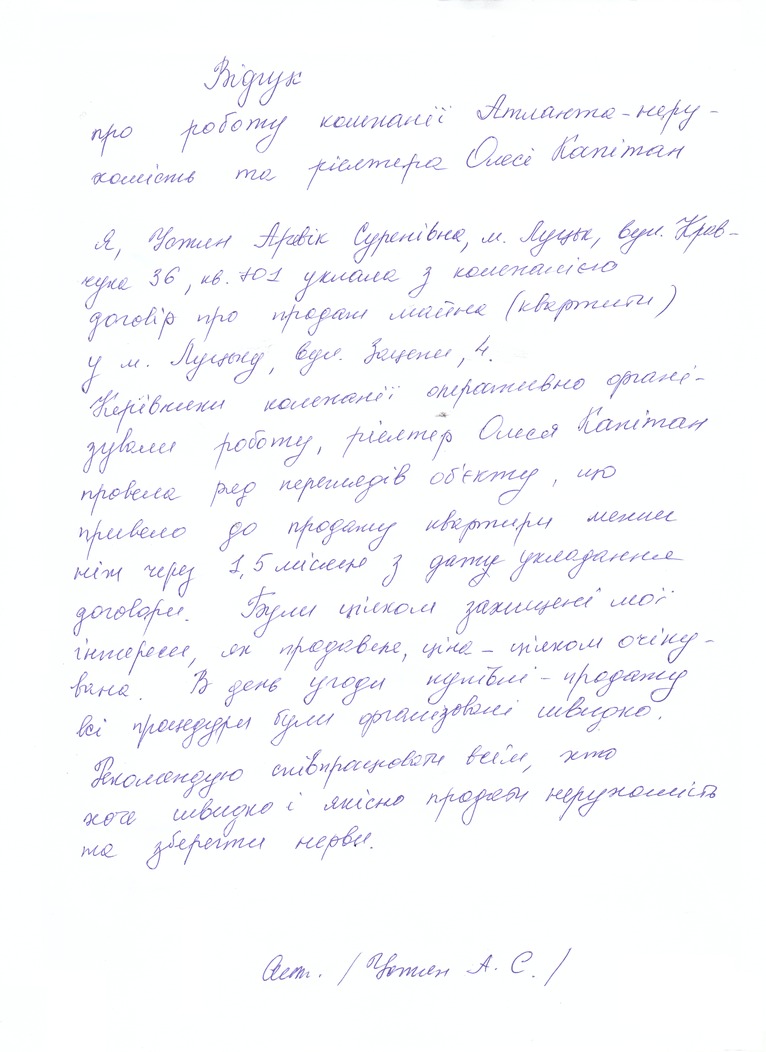 Відгук
про роботу компанії Атланта-неру-
хомість та рієлтера Олесі Капітан
Я, Арвік Суренівна, м. Луцьк, вул. Крав-
чука 36, кв. 101 уклала з компанією
договір про продаж майна (квартити)
у м. Луцьку, вул. Зацепи, 4.
Керівники компанії оперативно органі-
зували роботу, рієлтер Олеся Капітан
провела ряд переглядів об'єкту, що
привело до продажу квартири менш
ніж через 1,5 місяця з дати укладання
договору. Були цілком захищені мої
інтереси, як продавця, ціна - цілком очіку-
вана. В день угоди купівлі-продажу
всі процедури були організовані швидко.
Рекомендую співпрацювати всім, хто
хоче швидко і якісно продати нерухомість
та зберегти нерви.
А. С. /